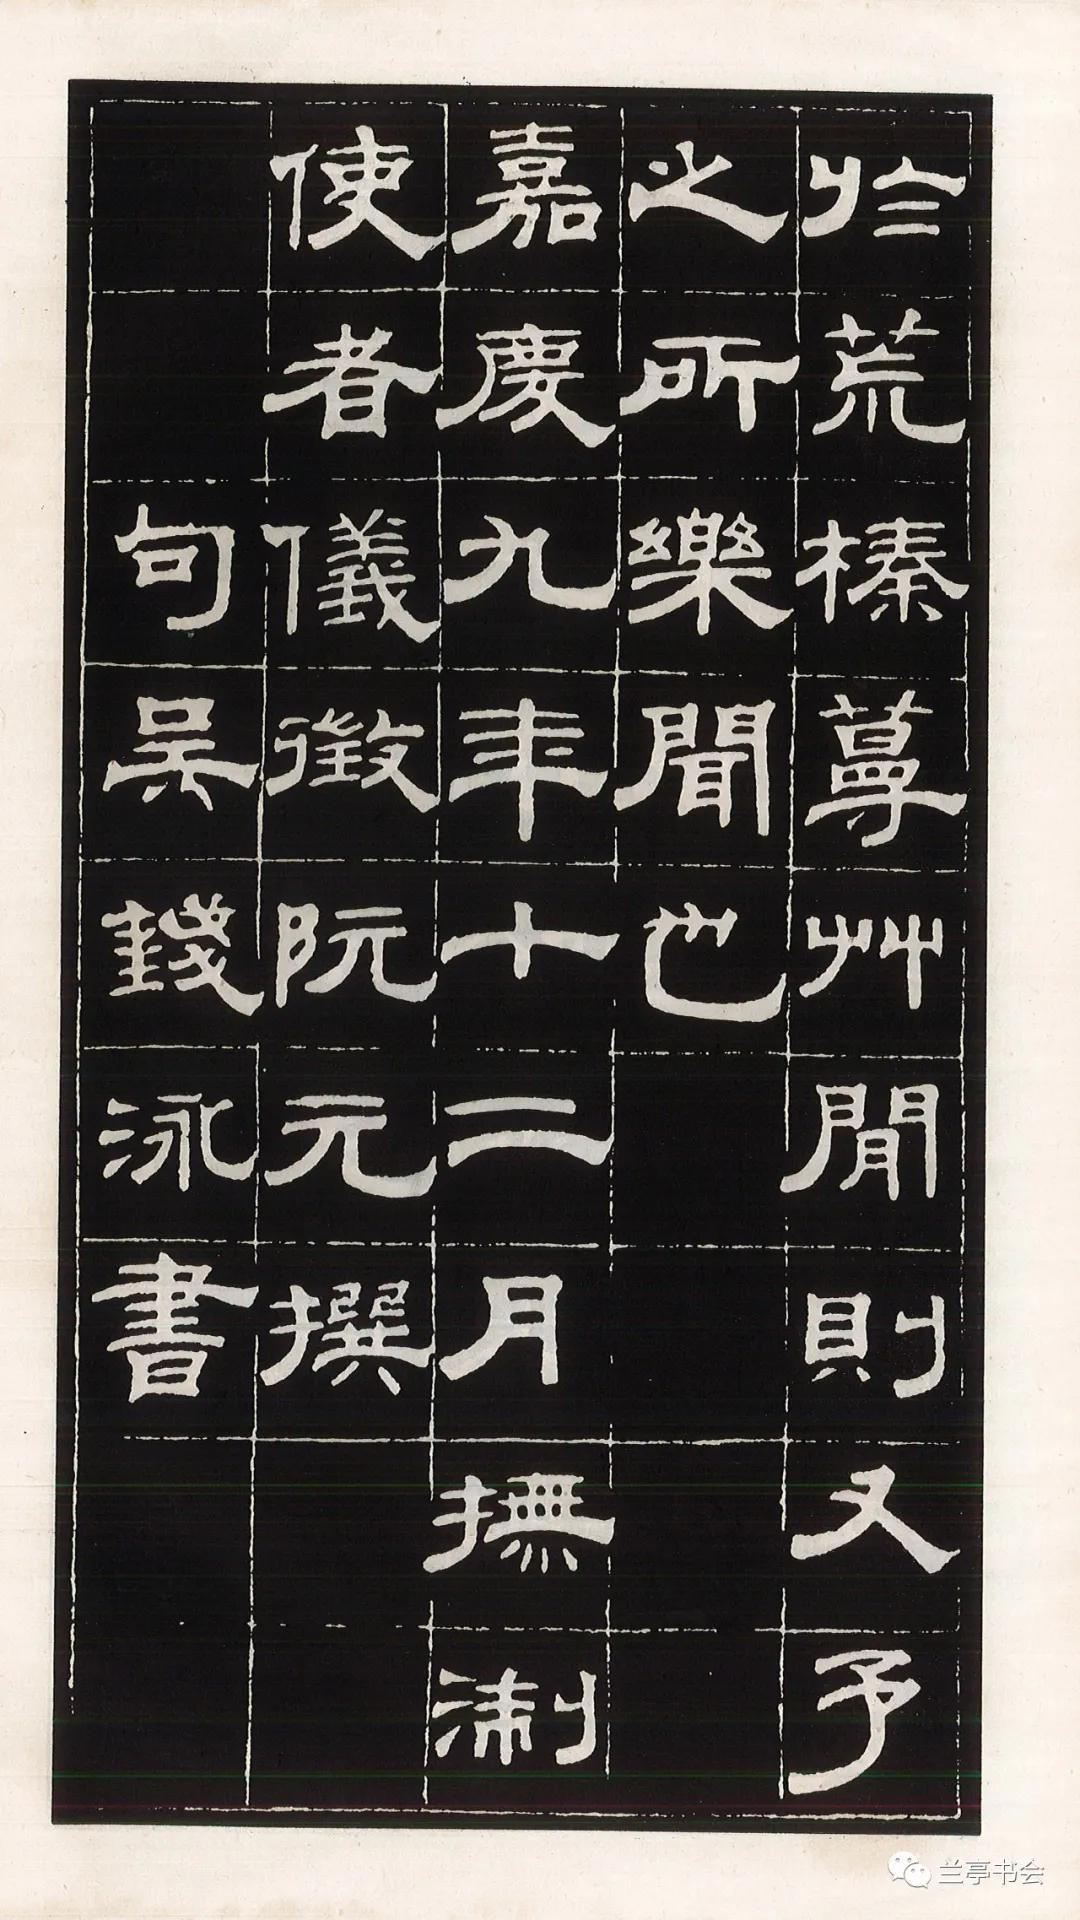 於荒榛蔓艸閒則又予
之所樂聞也
嘉慶九年十二月撫淛
使者儀徵阮元撰
句吳錢泳書
兰亭书会